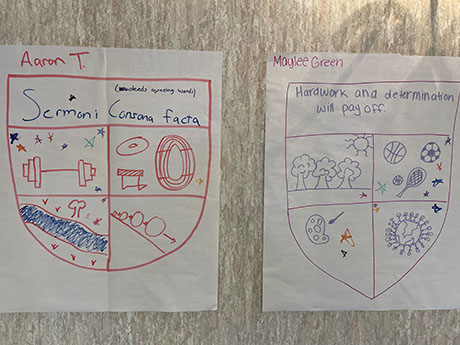 Aaron T.
Sermoni Consona facta
Maylee Green
Hardwork and determination
will pay off.